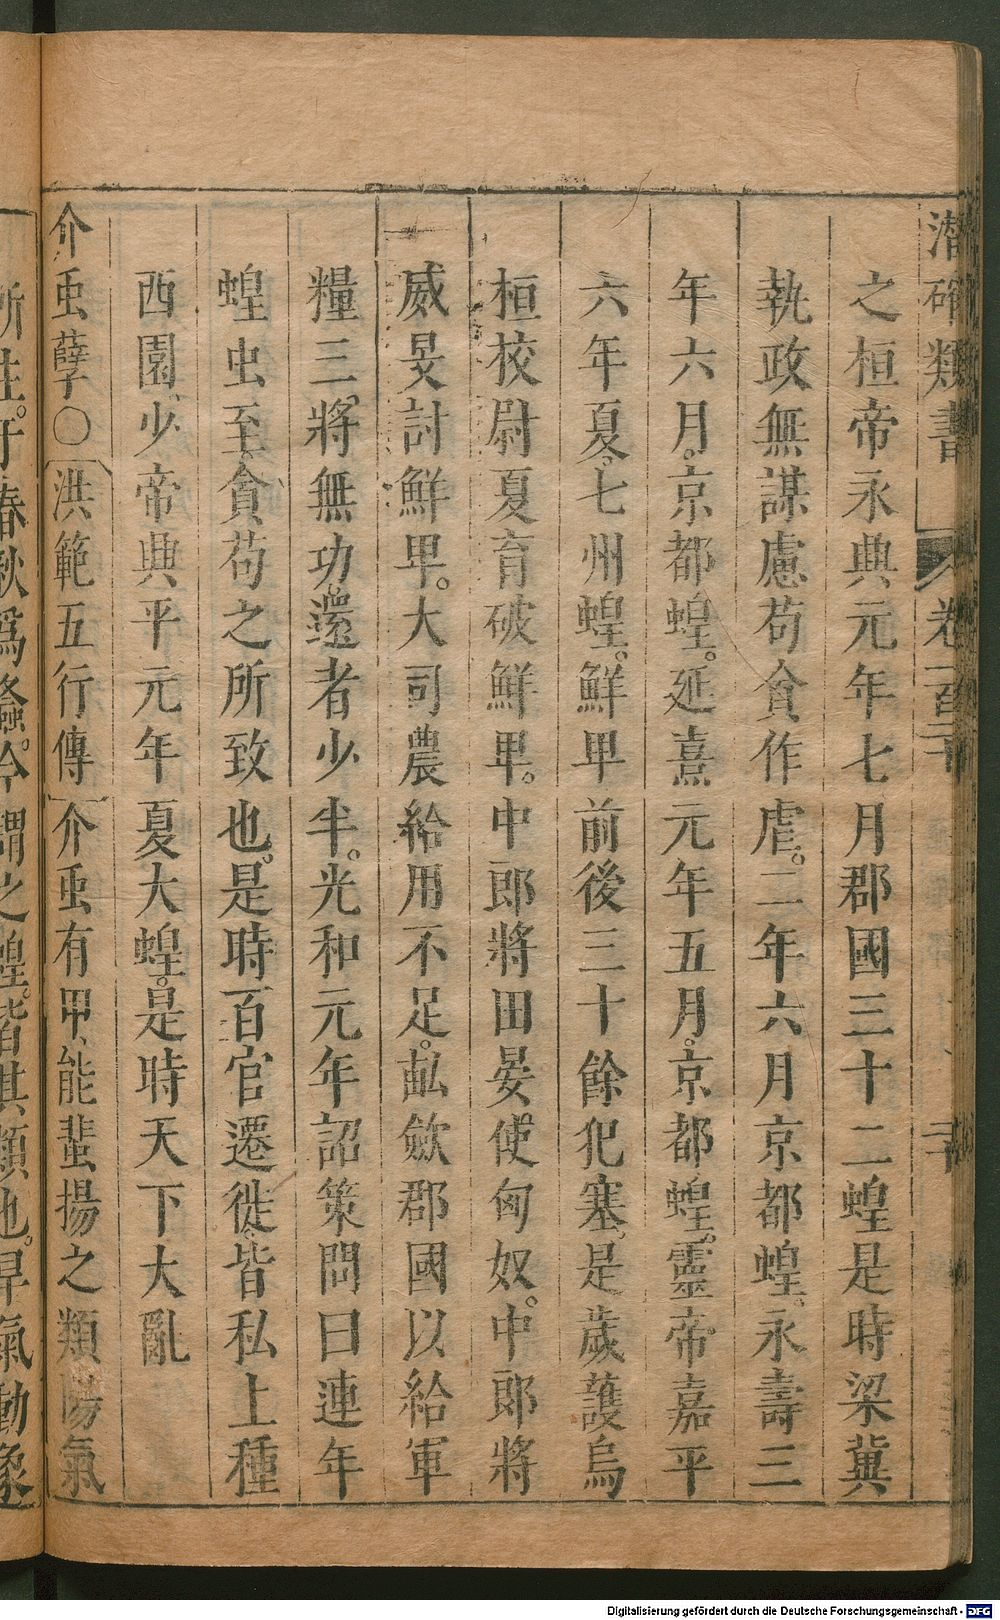 潛確類書 卷一百二十
之桓帝永興元年七月郡國三十二蝗是時梁冀
執政無謀慮苟貪作虐。二年六月京都蝗。永壽三
年六月。京都蝗。延熹元年五月。京都蝗。靈帝嘉平
六年夏。七州蝗。鮮𤰞前後三十餘犯塞。是歲護烏
桓校尉夏育破鮮𤰞。中郎將田晏。使匈奴。中郎將
臧旻討鮮𤰞。大司農給用不足。畝歛郡國以給軍
糧三。將無功。還者少半。光和元年詔策問曰連年
蝗虫至貪苟之所致也。是時百官遷徙。皆私上種
西園、少帝興平元年夏大蝗。是時天下大亂
介䖝孽〇洪範五行傳 介䖝有甲、能蜚揚之類陽氣
所生。于春秋爲螽。今謂之蝗。皆其類也。旱氣動象
Digitalisierung gefördert durch die Deutsche Forschungsgemeinschaft - DFG